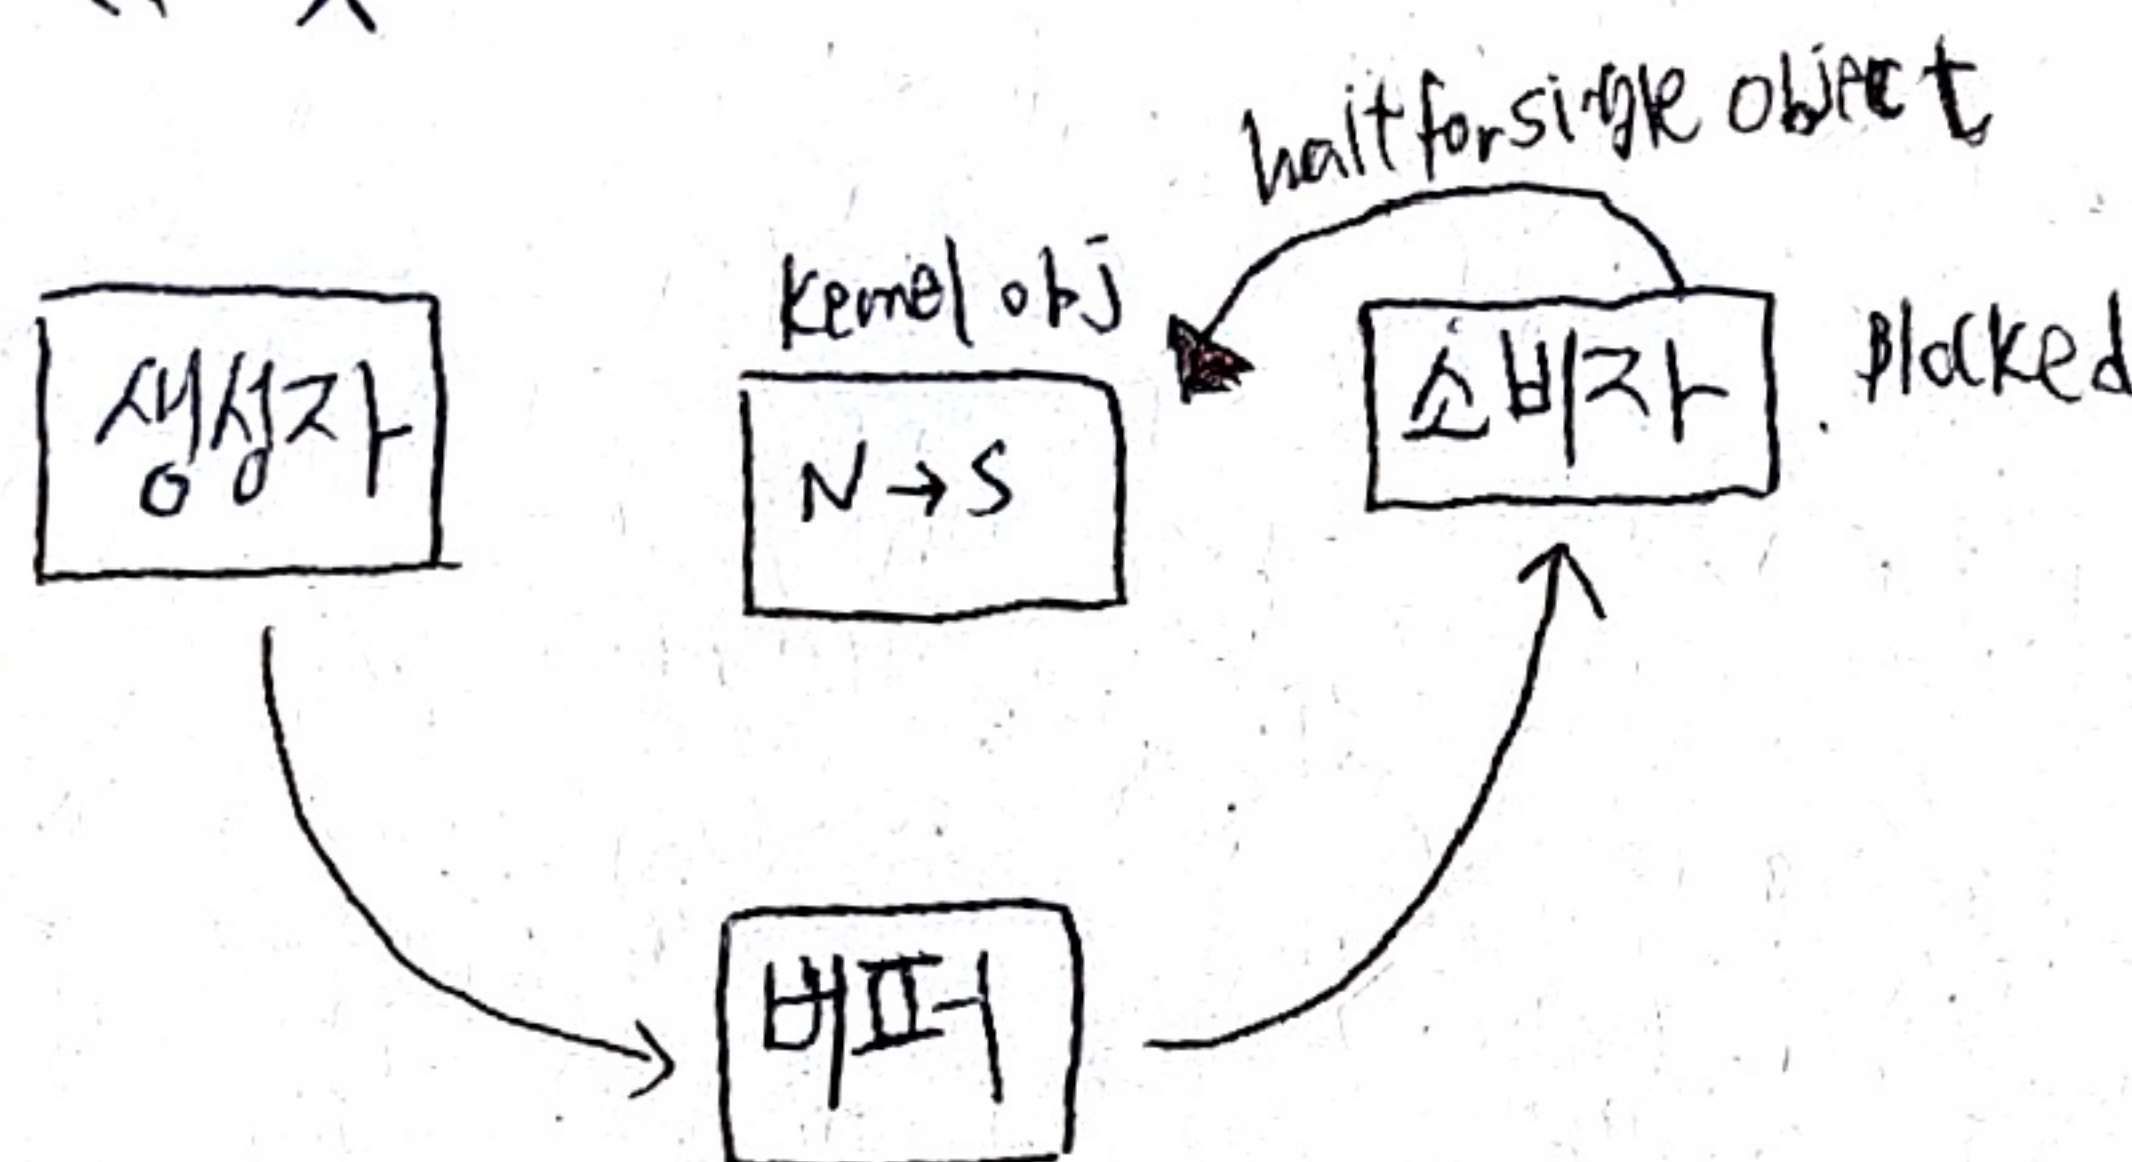 waitforsingle object
kernel obj
생성자
N → S
소비자
Blocked
버퍼